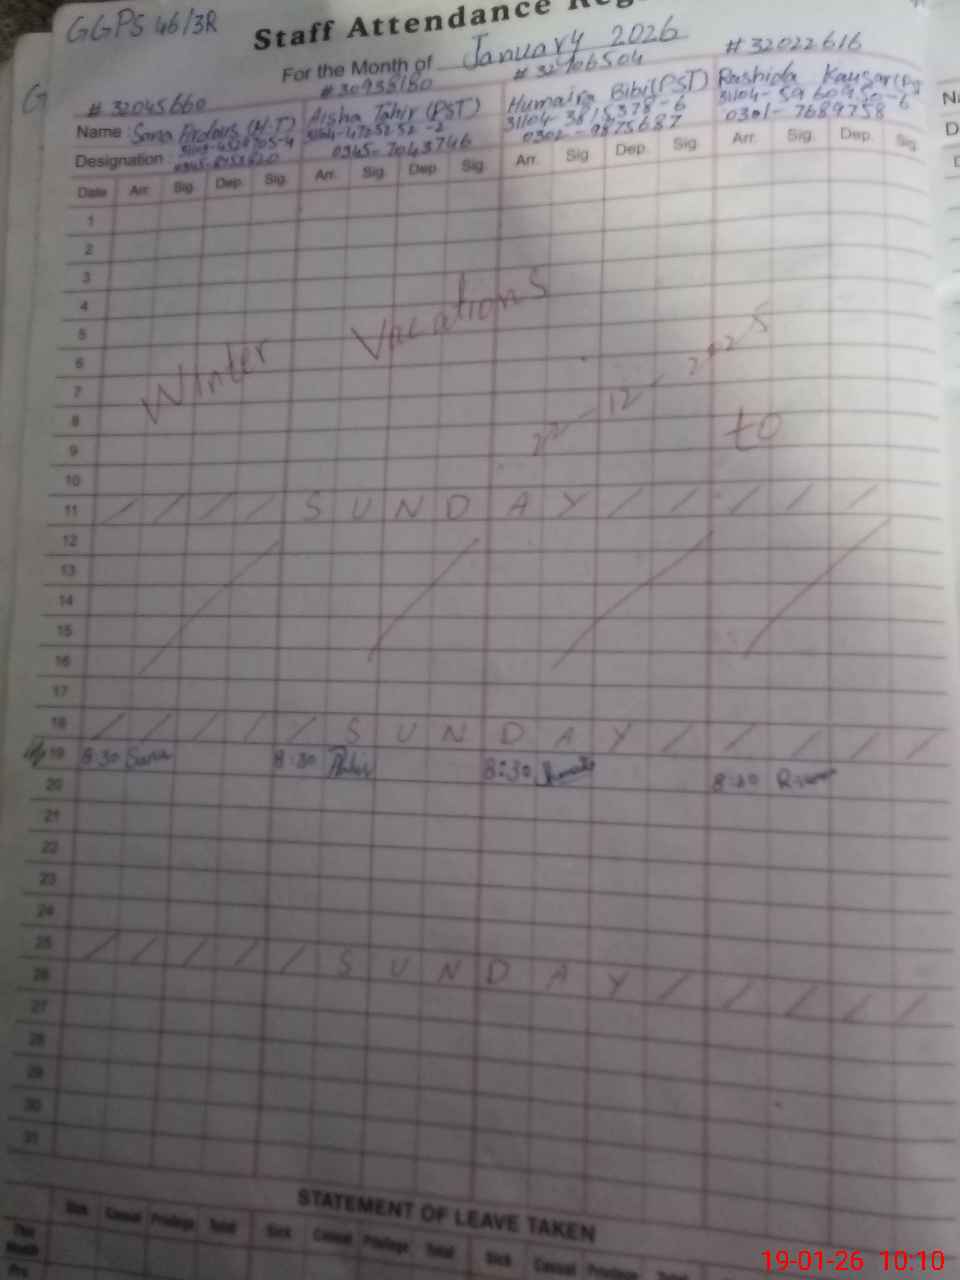 GGPS 46/3R
Staff Attendance Reg
For the Month of January 2026
# 32045660 # 30938180 # 32706504 # 32022616
Name : Sana Firdous (H.T) Aisha Tahir (PST) Humaira Bibi (PST) Rashida Kausar
31104-3815378-6
Designation 0345-7043746 0302-9875687 0301-7689758
Date Arr. Sig. Dep. Sig. Arr. Sig. Dep. Sig. Arr. Sig. Dep. Sig. Arr. Sig. Dep. Sig.
1
2
3
4
5
6
7
8
9
10
Winter Vacations 22-12-2025 to
11 S U N D A Y
12
13
14
15
16
17
18 S U N D A Y
19 8:30 Sana 8:30 8:30 8:30
20
21
22
23
24
25 S U N D A Y
26
27
28
29
30
31
STATEMENT OF LEAVE TAKEN
Sick Casual Privilege Total Sick Casual Privilege Total Sick Casual Privilege Total
This Month
Pre.
19-01-26 10:10